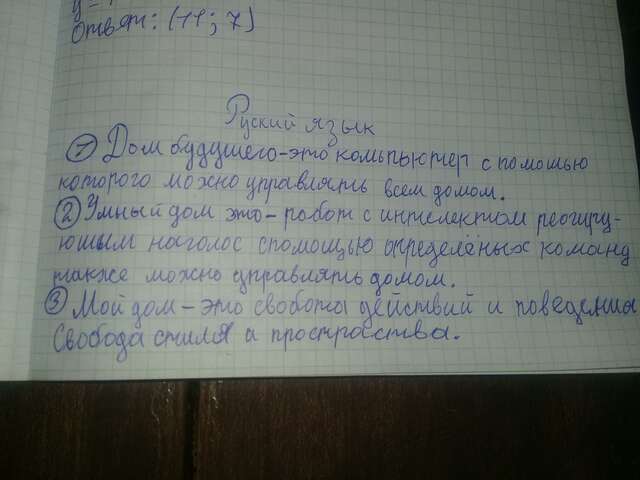 Ответ: (11; 7)
Руский язык
1 Дом будушего-это компьютер с помошью
которого можно управлять всем домом.
2 Умный дом это-робот с интелектом реогиру-
юшым наголос спомощью определёных команд
также можно управлять домом.
3 Мой дом-это свобота действий и поведения
Свобода стиля и простраства.